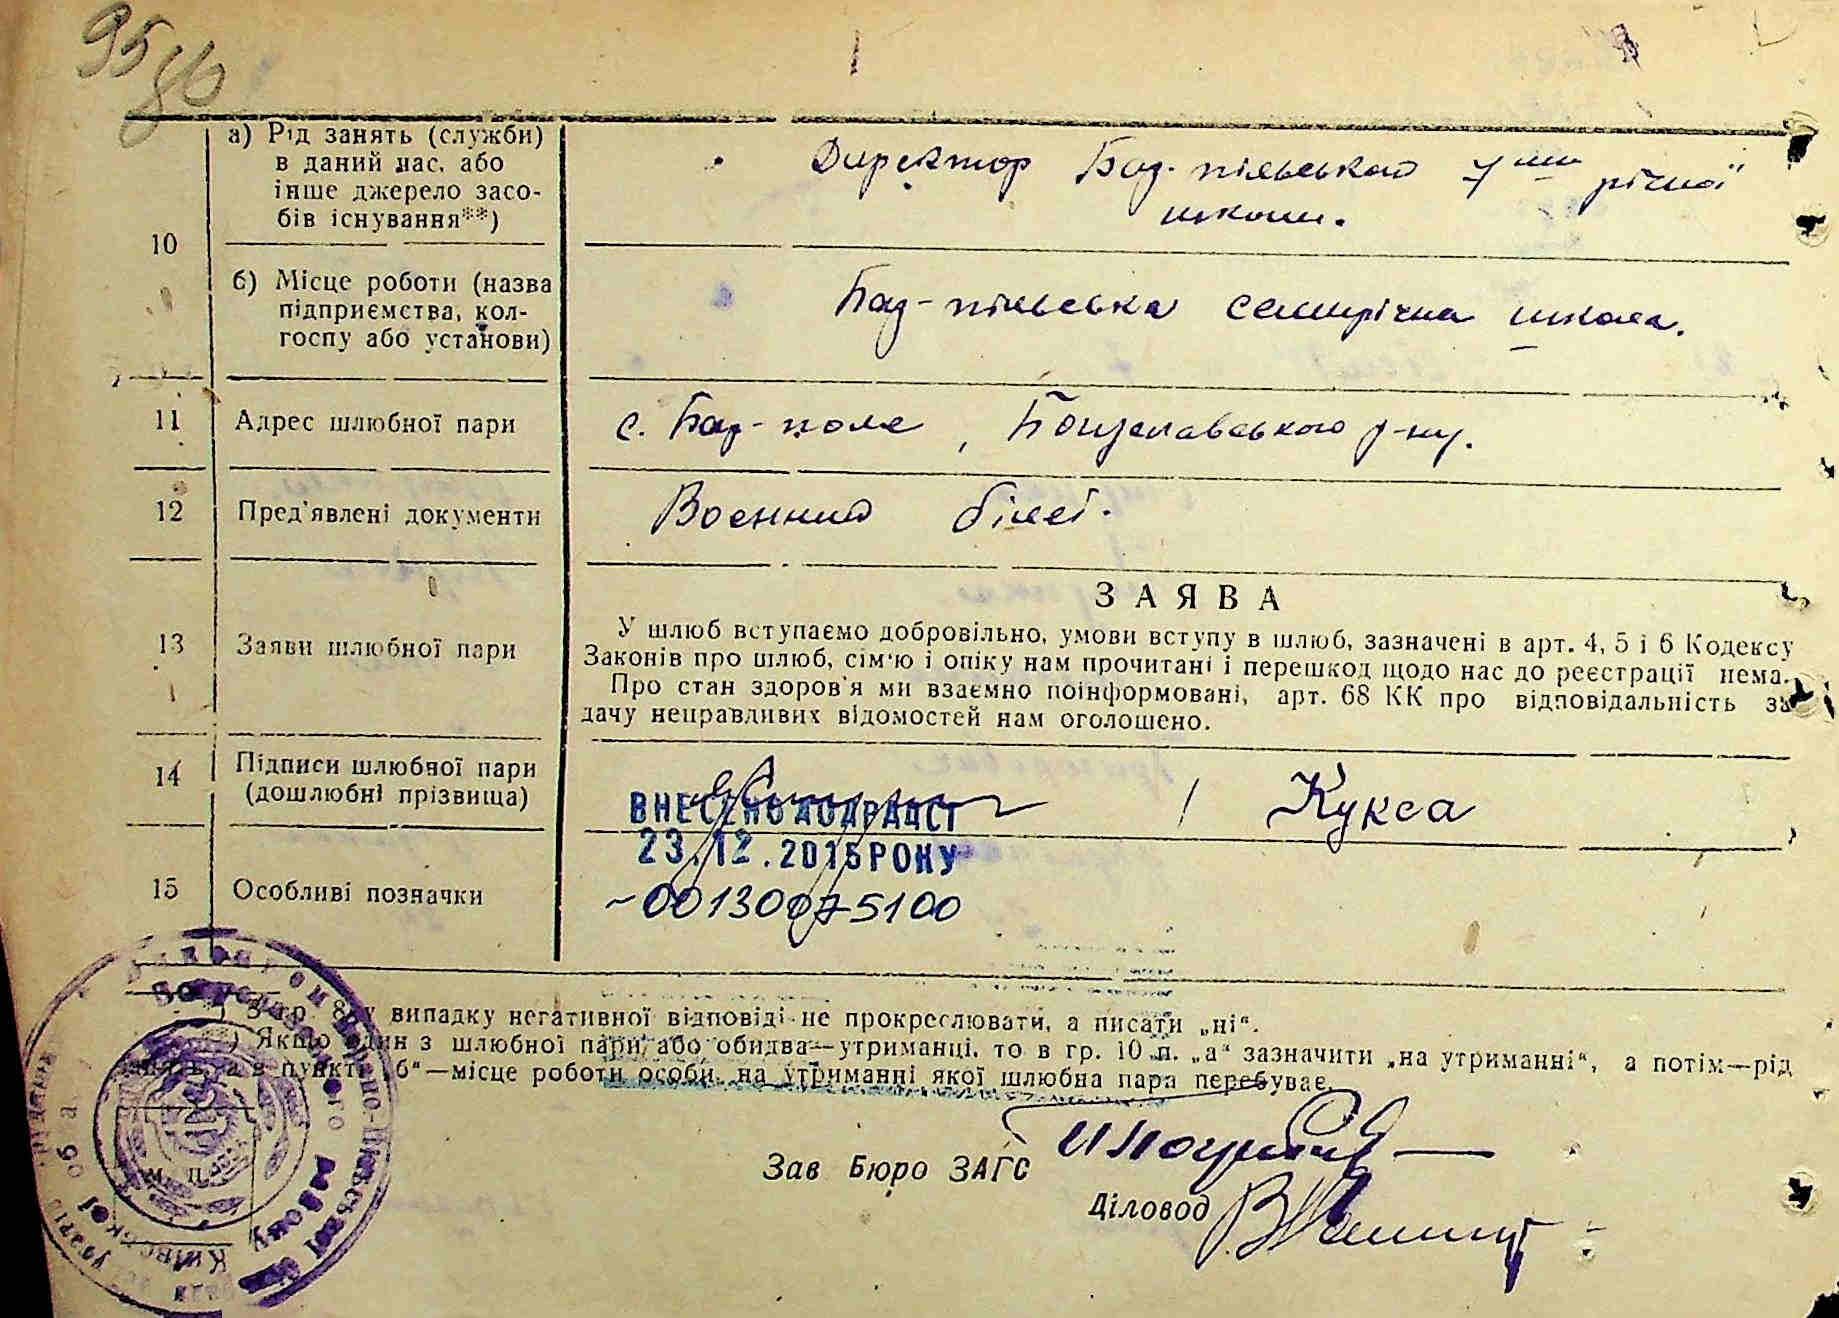 95зв
10
а) Рід занять (служби)
в даний час, або
інше джерело засо-
бів існування**)
Директор Баз-пільської 7ми річної
школи.
б) Місце роботи (назва
підприємства, кол-
госпу або установи)
Баз-пільська семирічна школа.
11 Адрес шлюбної пари
с. Баз-поле, Бондзелавського р-ну.
12 Пред'явлені документи
Воєнний білет.
13 Заяви шлюбної пари
ЗАЯВА
У шлюб вступаємо добровільно, умови вступу в шлюб, зазначені в арт. 4, 5 і 6 Кодексу
Законів про шлюб, сім'ю і опіку нам прочитані і перешкод щодо нас до реєстрації нема.
Про стан здоров'я ми взаємно поінформовані, арт. 68 КК про відповідальність за
дачу неправдивих відомостей нам оголошено.
14 Підписи шлюбної пари
(дошлюбні прізвища)
/ Кукса
ВНЕСЕНО ДО ДРАЦСГ
23.12.2015 РОКУ
15 Особливі позначки
~00130075100
у випадку негативної відповіді не прокреслювати, а писати „ні“.
) Якщо один з шлюбної пари або обидва—утриманці, то в гр. 10 п. „а“ зазначити „на утриманні“, а потім—рід
занять, а в пункті „б“—місце роботи особи, на утриманні якої шлюбна пара перебуває.
Зав Бюро ЗАГС
Діловод
М. П.
Київської області
району